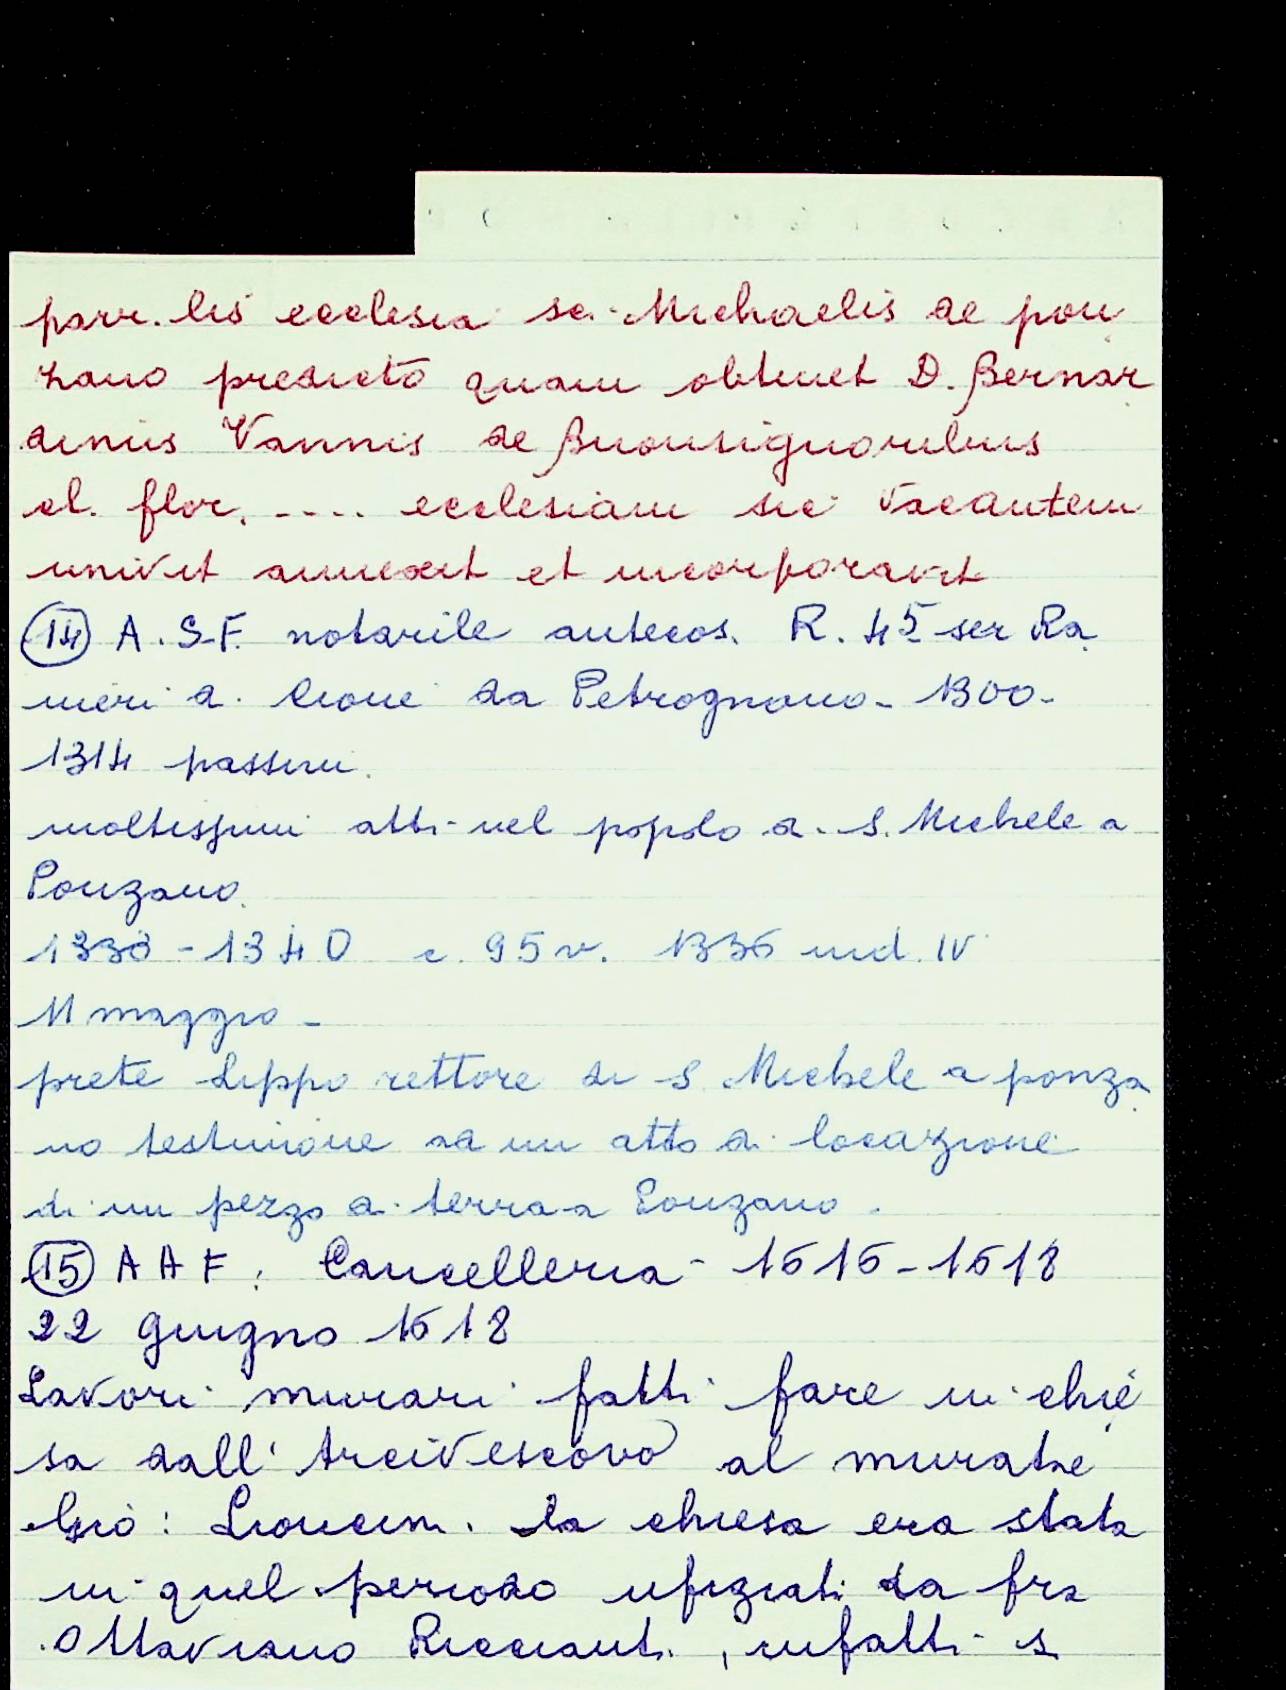 parr.lis ecclesia sci Michaelis de pon
zano predicto quam obtinet D. Bernar
dinus Vannis de Buonsignoribus
cl. flor. .... ecclesiam sic vacantem
univit annexit et incorporavit
(14) A.S.F. notarile antecos. R. 45 ser Ra
nieri di Cione da Petrognano - 1300-
1314 passim.
moltissimi atti nel popolo di S. Michele a
Ponzano.
1338-1340 c. 95v. 1336 ind. IV
11 maggio -
prete Lippo rettore di S. Michele a ponza
no testimone ad un atto di locazione
di un pezzo di terra a Ponzano.
(15) A A F: Cancelleria - 1616-1618
22 giugno 1618
Lavori murari fatti fare in chie
sa dall'Arcivescovo al muratore
Giò: Lioncini. la chiesa era stata
in quel periodo ufiziati da fra
Ottaviano Ricciant. , infatti s